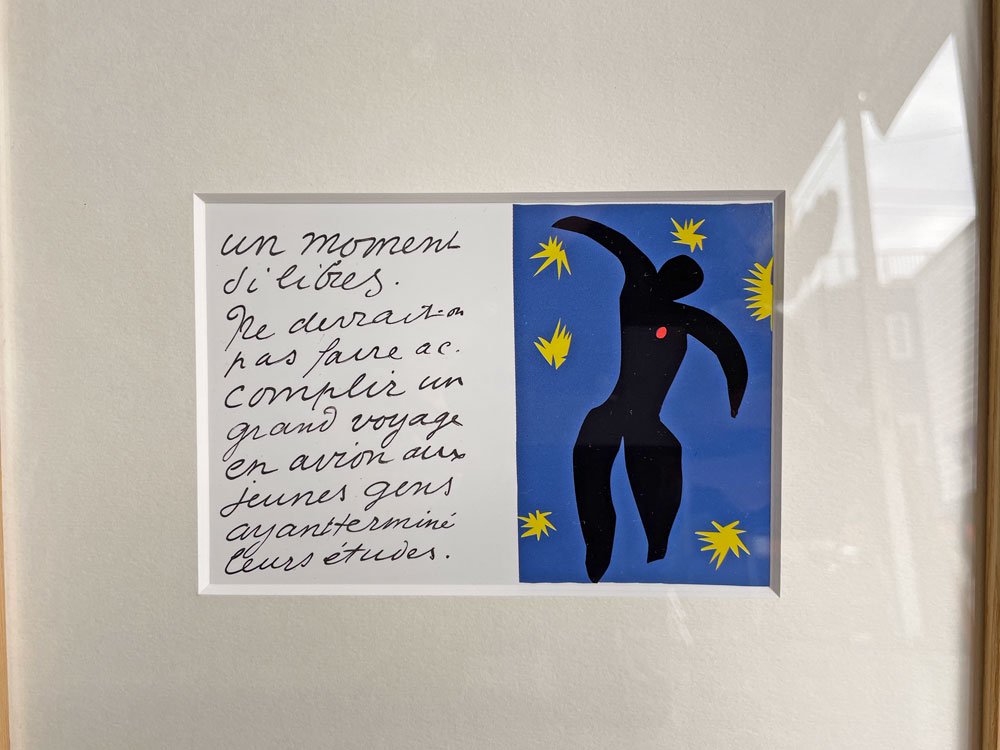 un moment
si libres.
Ne devrait-on
pas faire ac-
complir un
grand voyage
en avion aux
jeunes gens
ayant terminé
leurs études.